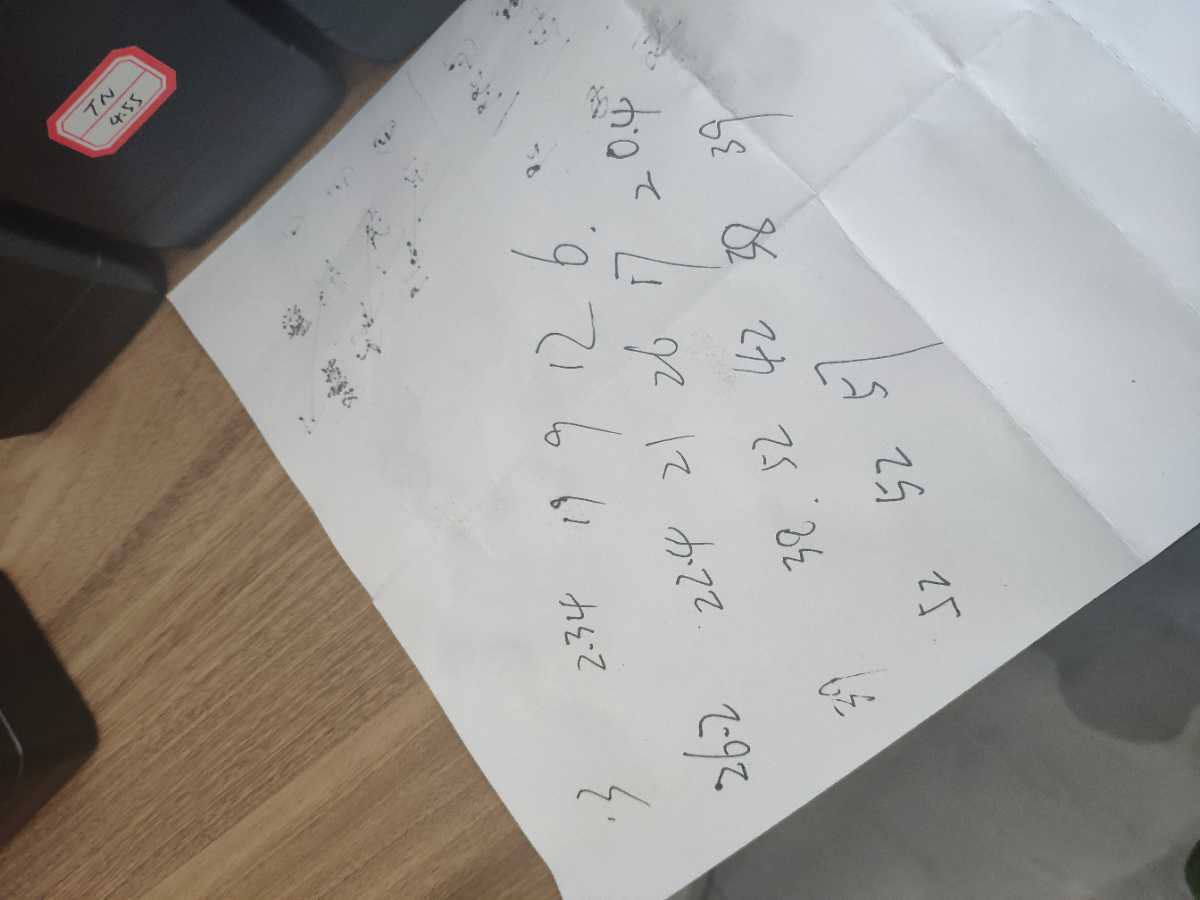 TN
4.55
.3 2.34 19 9 12 6.
26.2 22.4 21 26 17 2 0.4
39 38. 52 42 38 39
52 52 57